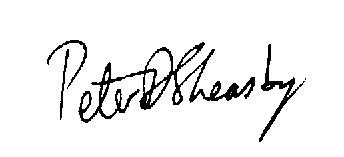 Peter D Sheasby